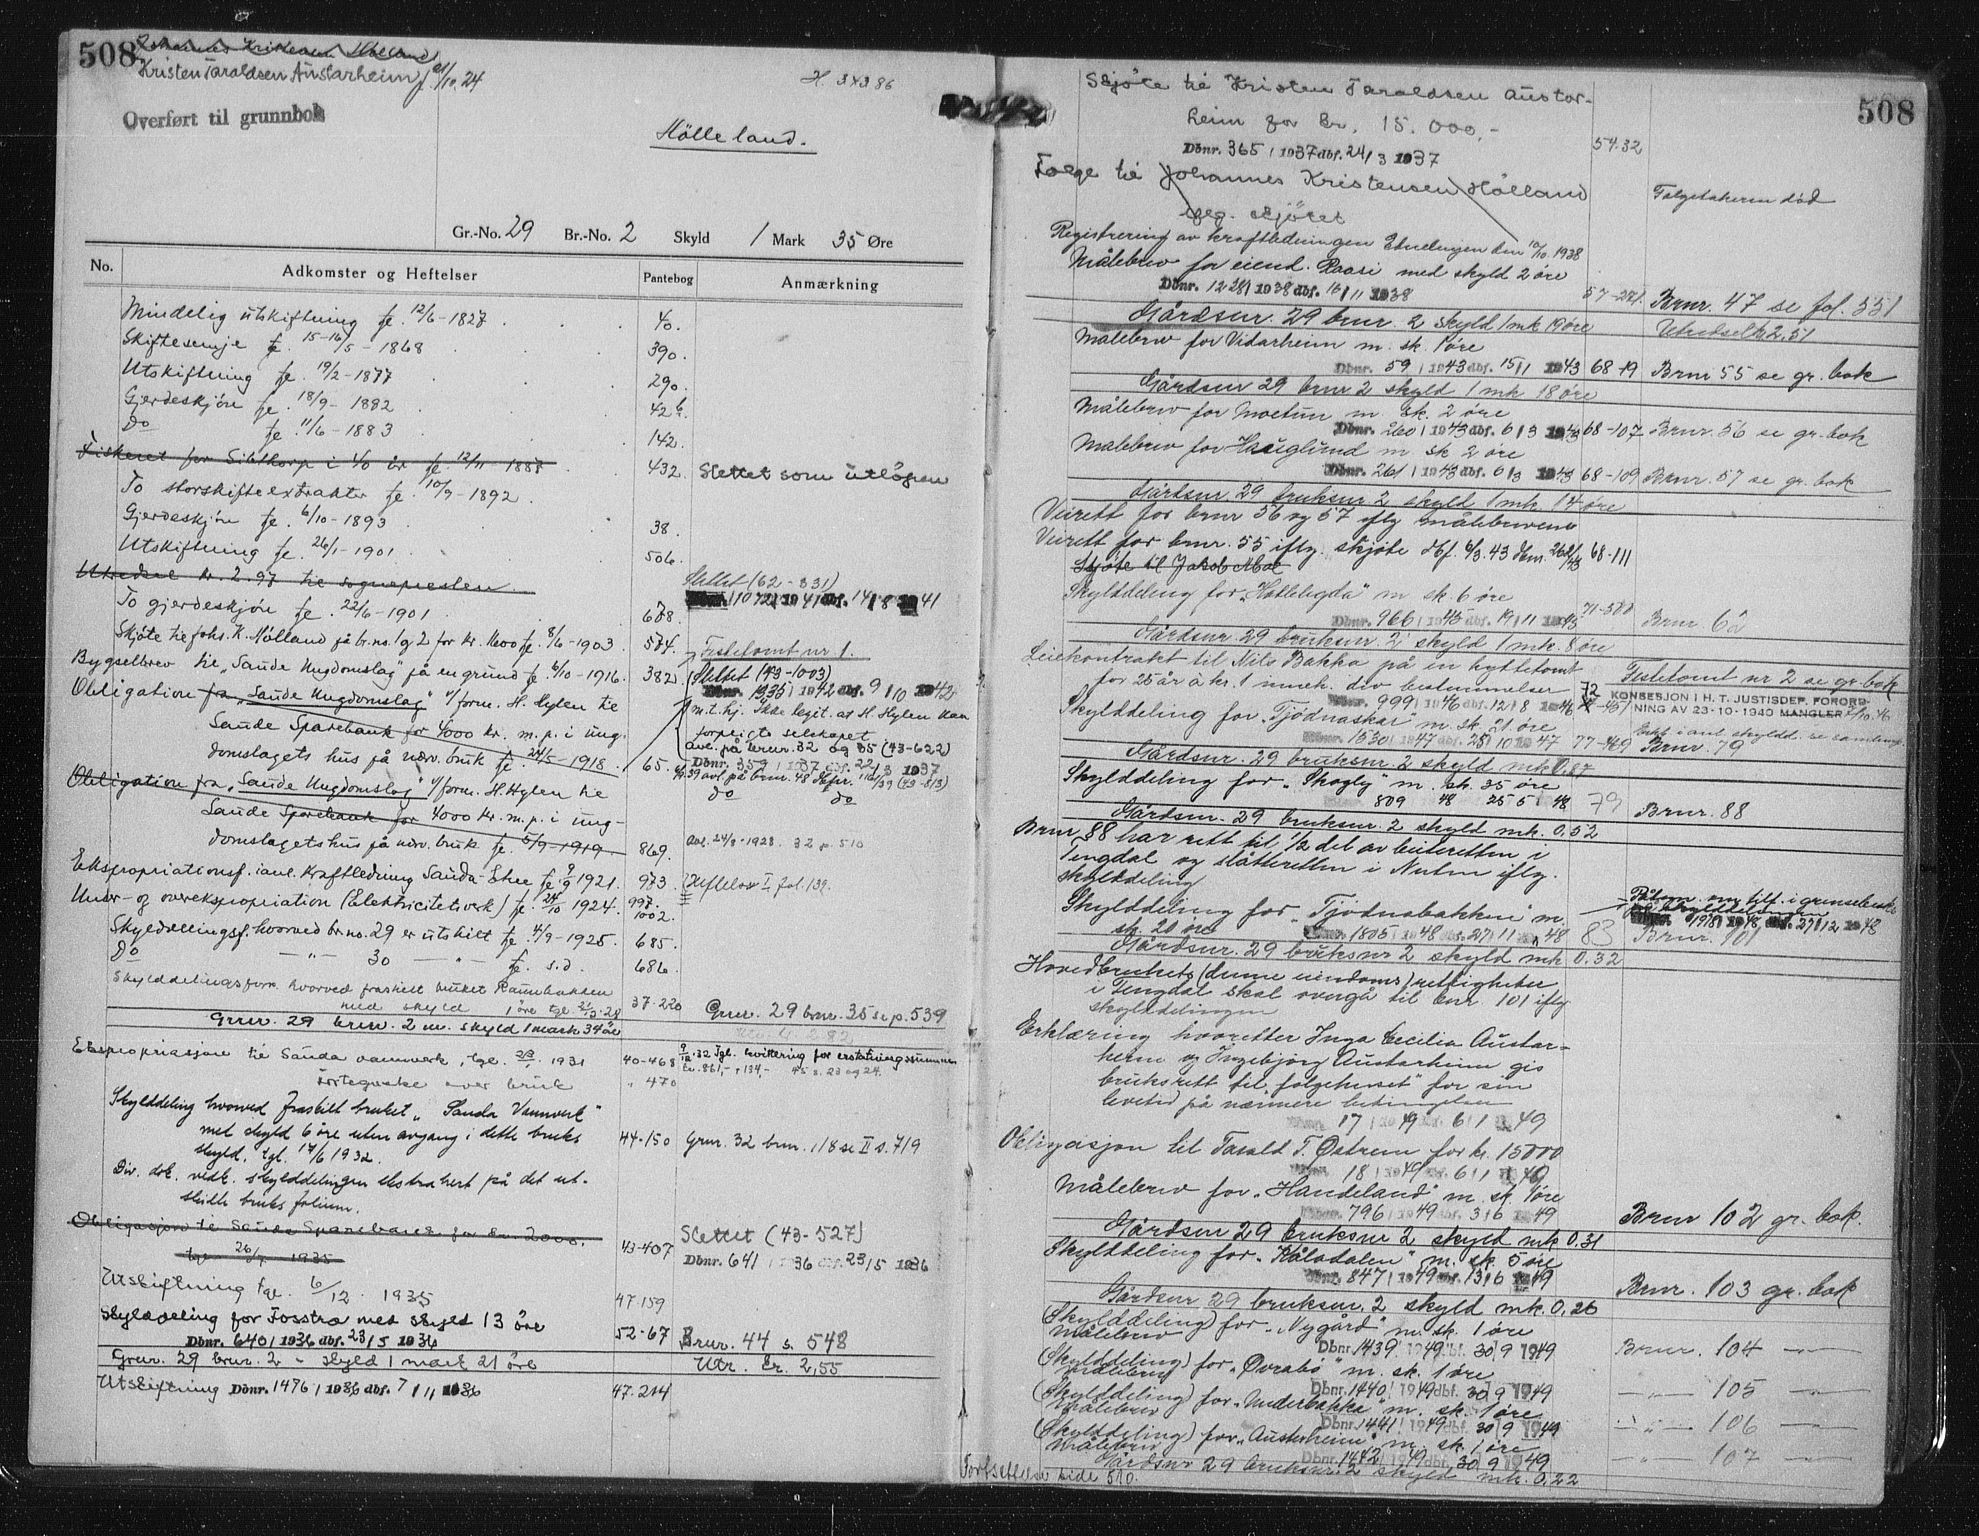 508
Johannes Kristensen Hölland
Kristen Taraldsen Austarheim
Overført til grunnbok
Hölleland.
Gr.-No. 29 Br.-No. 2 Skyld 1 Mark 35 Øre
No. Adkomster og Heftelser Pantebog Anmærkning
Mindelig utskiftning fe. 12/6-1827 40.
Skiftesemje fe. 15-16/5-1868 390.
Utskiftning fe. 19/2-1877 290.
Gjerdeskjøn fe. 18/9-1882 42
Do fe. 11/6-1883 142.
Fiskeret for Sibthorp i 40 år fe. 12/11-1888 432. Slettet som utløpen
To storskifteextrakter fe. 10/9-1892.
Gjerdeskjøn fe. 6/10-1893 38.
Utskiftning fe. 26/1-1901 506.
Utredsel kr. 2.97 til sognepresten. Slettet (62-831)
Dbnr. 1072 1941 dbf. 14/8 1941
To gjerdeskjøn fe. 22/6-1901 678.
Skjøte til Johs. K. Hølland på br.no. 1 og 2 for kr. 1600 fe. 8/6-1903 574. Festetomt nr 1.
Bygselbrev til "Sauda Ungdomslag" på en grund fe. 6/10-1916. 382. Slettet (43-1003)
Dbnr. 1935 1942 dbf. 9/10 1942
Obligation fra "Sauda Ungdomslag" v/form. H. Hylen til m.t.hj. Ikke legit. at H. Hylen kan
Sauda Sparebank for 4000 kr. m.p. i ung- forpligte selskapet
domslagets hus på nævn. bruk fe. 24/5-1918. 65. avl. på brnr. 32 og 35 (43-622)
Dbnr. 359 1937 dbf. 22/3 1937
Obligation fra "Sauda Ungdomslag" v/form. H. Hylen til do do
Sauda Sparebank for 4000 kr. m.p. i ung-
domslagets hus på nævn. bruk fe. 5/9-1919. 869. Avl. 24/8-1928 32 p. 510
Ekspropriationsf. i anl. Kraftledning Sauda-Etne fe. 9/9 1921. 973. Heftelse I fol. 139.
Under- og overekspropriation (Elektricitetsverk) fe. 24/10 1924. 997. 1002.
Skylddelingsf. hvorved br.no. 29 er utskilt fe. 4/9-1925. 685.
Do —"— 30 —"— fe. s.d. 686.
Skylddelingsforr. hvorved fraskilt bruket Raunbakken
med skyld 1 øre tgl. 21/3-28 37-220 Grnr. 29 brnr. 35 se p. 539
Grnr. 29 brnr. 2 m. skyld 1 mark 34 øre
Ekspropriasjon til Sauda vannverk, tgl. 1931 40-468 9/12.32 tgl. kvittering for erstatningssummen
Fortegnelse over bruk " 470 kr. 861,- + 134,- 45 s. 23 og 24.
Skylddeling hvorved fraskilt bruket "Sauda Vannverk"
med skyld 6 øre uten avgang i dette bruks 44-150 Grnr. 32 brnr. 118 se II s. 719
skyld, tgl. 17/6 1932.
Div. dok. vedk. skylddelingen ekstrahert på det ut-
skilte bruks folium.
Obligasjon til Sauda Sparebank for kr. 2000. Slettet (43-527)
tgl. 1935 43-407 Dbnr. 641 1936 dbf. 23/5 1936
Utskiftning tgl. 6/12 1935 47-159
Skylddeling for Fosstra med skyld 13 öre
Dbnr. 640 1936 dbf. 23/5 1936 52-67 Brnr. 44 s. 548
Grnr. 29 brnr. 2 - skyld 1 mark 21 öre Utr. kr. 2,55
Utskiftning Dbnr. 1476 1936 dbf. 7/11 1936 47-214
508
Skjöte til Kristen Taraldsen Austar-
heim for kr. 15.000,-
Dbnr. 365 1937 dbf. 24/3 1937 54.32
Følge til Johannes Kristensen Hölland Følgetakeren död
iflg. skjötet
Registrering av kraftledningen Etnelinjen den 10/10 1938
Målebrev for eiend. Raasi med skyld 2 öre
Dbnr. 1228 1938 dbf. 16/11 1938 57-221 Brnr. 47 se fol. 551
Gårdsnr. 29 brnr. 2 skyld 1 mk 19 öre Utredsel kr 2,51
Målebrev for Vidarheim m. sk. 1 öre
Dbnr. 59 1943 dbf. 15/1 1943 68-19 Brnr 55 se gr. bok
Gårdsnr 29 brnr 2 skyld 1 mk 18 öre
Målebrev for Moetun m. sk. 2 öre
Dbnr. 260 1943 dbf. 6/3 1943 68-107 Brnr. 56 se gr. bok
Målebrev for Hauglund m. sk 2 öre
Dbnr. 261 1943 dbf. 6/3 1943 68-109 Brnr. 57 se gr. bok
Gårdsnr 29 bruksnr 2 skyld 1 mk 14 öre
Veirett for brnr 56 og 57 iflg målebrevene
Veirett for brnr. 55 iflg. skjøte dbf. 6/3.43 dbnr. 262/43 68-111
Skjøte til Jakob Moe
Skylddeling for "Høllebygda" m sk. 6 öre
Dbnr. 966 1945 dbf. 19/11 1945 Brnr. 62
Gårdsnr. 29 bruksnr. 2 skyld 1 mk. 8 öre
Leiekontrakt til Nils Bakka på en hyttetomt Festetomt nr 2 se gr. bok
for 25 år à kr. 1 m.m.h. div bestemmelser KONSESJON I H. T. JUSTISDEP. FORORD-
Dbnr. 999 1946 dbf. 12/8 1946 NING AV 23-10-1940 MANGLER
Skylddeling for "Tjödnaskar" m. sk. 21 öre
Dbnr. 1530 1947 dbf. 25/10 1947 77-469 Brnr. 79
Gårdsnr. 29 bruksnr. 2 skyld mk 0,87
Skylddeling for "Skogly" m. sk. 35 öre
809 48 25 5 48 79 Brnr. 88
Gårdsnr. 29 bruksnr. 2 skyld mk. 0,52
Brnr 88 har rett til 1/2 del av beiteretten i
Tengdal og slåtteretten i Nuten iflg.
skylddeling
Skylddeling for "Tjödnabakken" m.
sk. 20 öre Dbnr. 1805 1948 dbf. 27/11 1948 83 Brnr. 101
Gårdsnr. 29 bruksnr 2 skyld mk 0.32
Hovedbrukets (denne eiendoms) rettigheter
i Tengdal skal overgå til bnr. 101 iflg
skylddelingen
Erklæring hvoretter Inga Cecilia Austar-
heim og Ingebjørg Austarheim gis
bruksrett til "følgehuset" for sin
levetid på nærmere betingelser
17 1949 6/1 49
Obligasjon til Tarald T. Østrem for kr. 15000
18 1949 6/1 49
Målebrev for "Handeland" m. sk. 1 öre
796 1949 3/6 49 Brnr 102 gr. bok.
Gårdsnr 29 bruksnr 2 skyld mk 0.31
Skylddeling for "Håladalen" m. sk. 5 öre
847 1949 dbf. 13/6 49 Brnr. 103 gr. bok
Gårdsnr 29 bruksnr. 2 skyld mk. 0,26
(Skylddeling) for "Nygård" m. sk. 1 öre
Målebrev Dbnr. 1439 1949 dbf. 30/9 1949 Brnr. 104 —"—
(Skylddeling) for "Øvrabø" m. sk. 1 öre
Målebrev Dbnr. 1440 1949 dbf. 30/9 1949 —"— 105 —"—
(Skylddeling) for "Underbakka" m. sk. 1 öre
Målebrev Dbnr. 1441 1949 dbf. 30/9 1949 —"— 106 —
(Skylddeling) for "Austarheim" m. sk. 1 öre
Målebrev Dbnr. 1442 1949 dbf. 30/9 1949 —"— 107 —
Gårdsnr 29 bruksnr. 2 skyld mk. 0,22
Fortsettelse side 510.